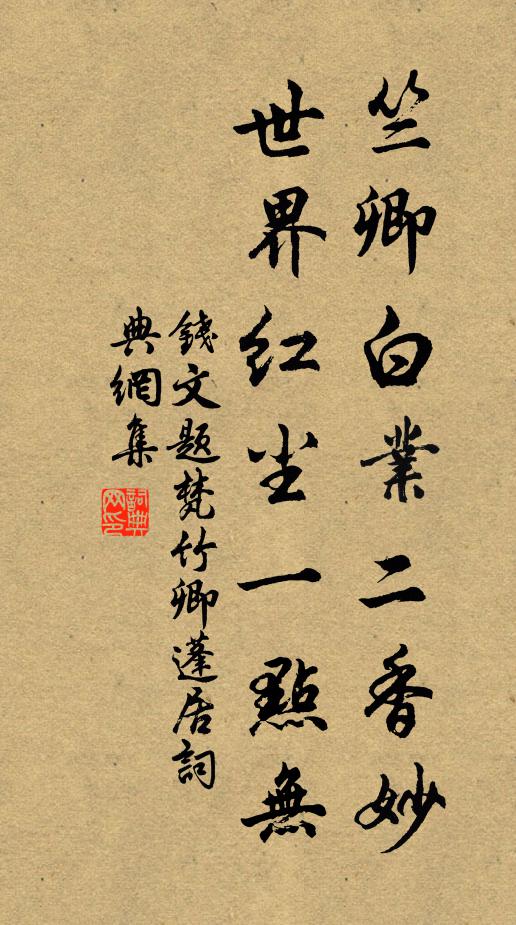 竺卿白業二香妙
世界紅尘一點無
錢文題梵竹卿蓬居詞
典網集
詞典
网印